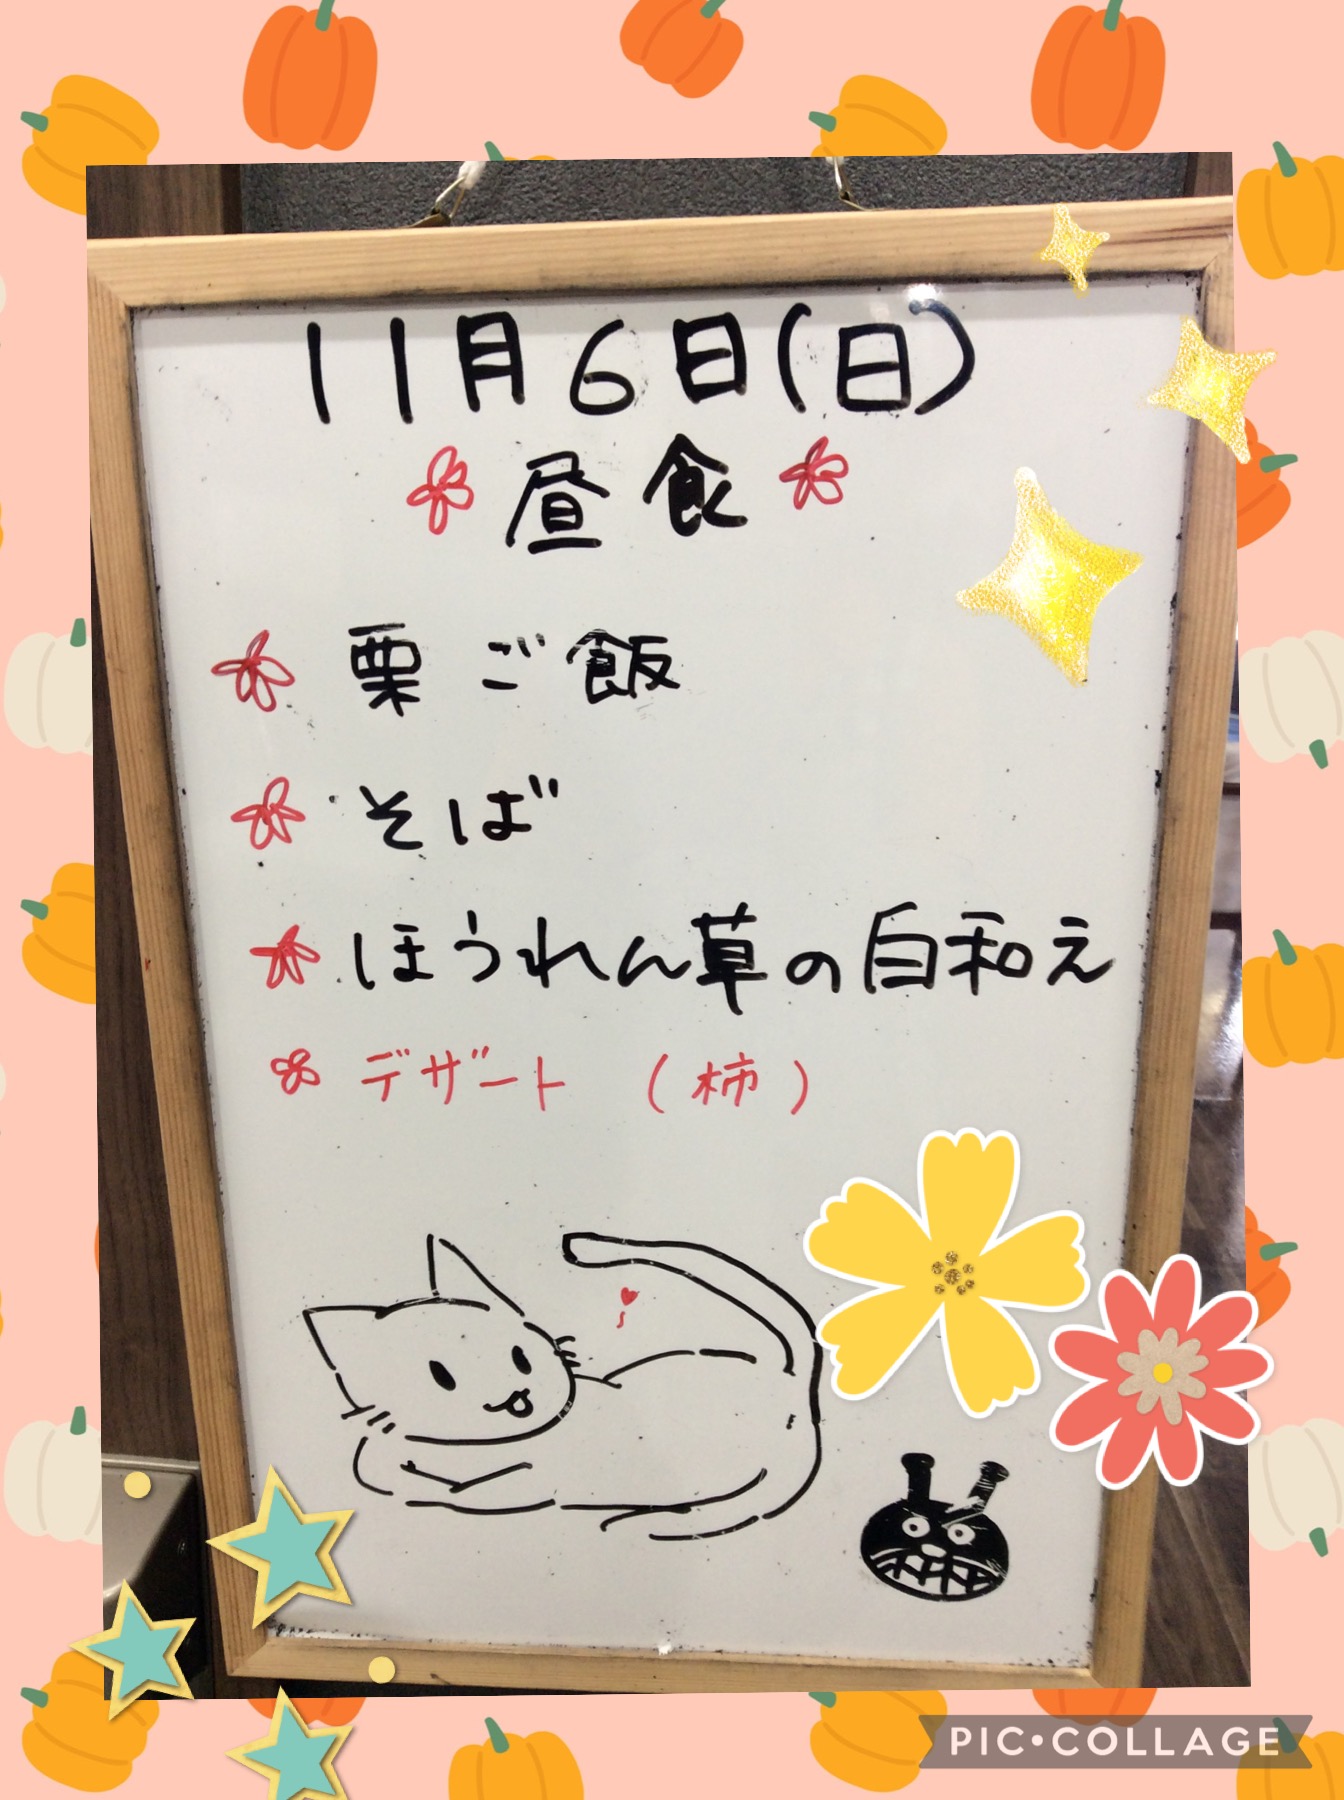 11月6日(日)
昼食
栗ご飯
そば
ほうれん草の白和え
デザート (柿)
PIC•COLLAGE